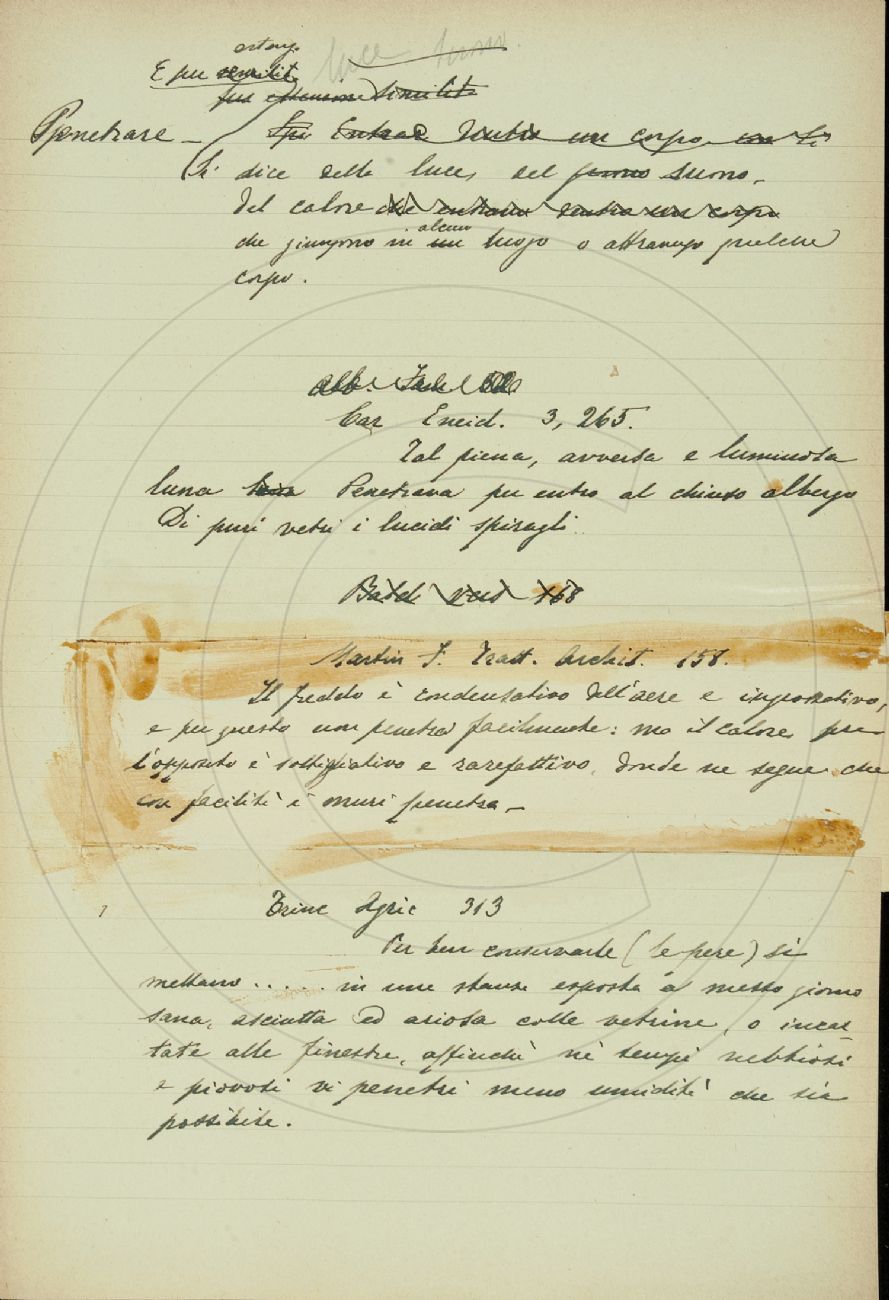 luce suono
estens.
E per similit.
per estensione Similit.
Penetrare – Entrar dentro un corpo
Si dice della luce, del suono,
del calore che entrano dentro un corpo
che giungono in un alcun luogo o attraverso qualche
corpo.
Car Eneid. 3, 265.
Tal piena, avversa e luminosa
luna Penetrava per entro al chiuso albergo
Di puri vetri i lucidi spiragli
Martin F. Tratt. Archit. 158.
Il freddo è condensativo dell'aere e ingrossativo,
e per questo non penetra facilmente: ma il calore per
l'opposito è sottigliativo e rarefattivo, donde ne segue che
con facilità i muri penetra –
Trinc Agric 313
Per ben conservarle (le pere) si
mettano ..... in una stanza esposta a mezzo giorno
sana, asciutta ed ariosa colle vetrine, o incar
tate alle finestre, affinchè nè tempi nebbiosi
e piovosi vi penetri meno umidità che sia
possibile.